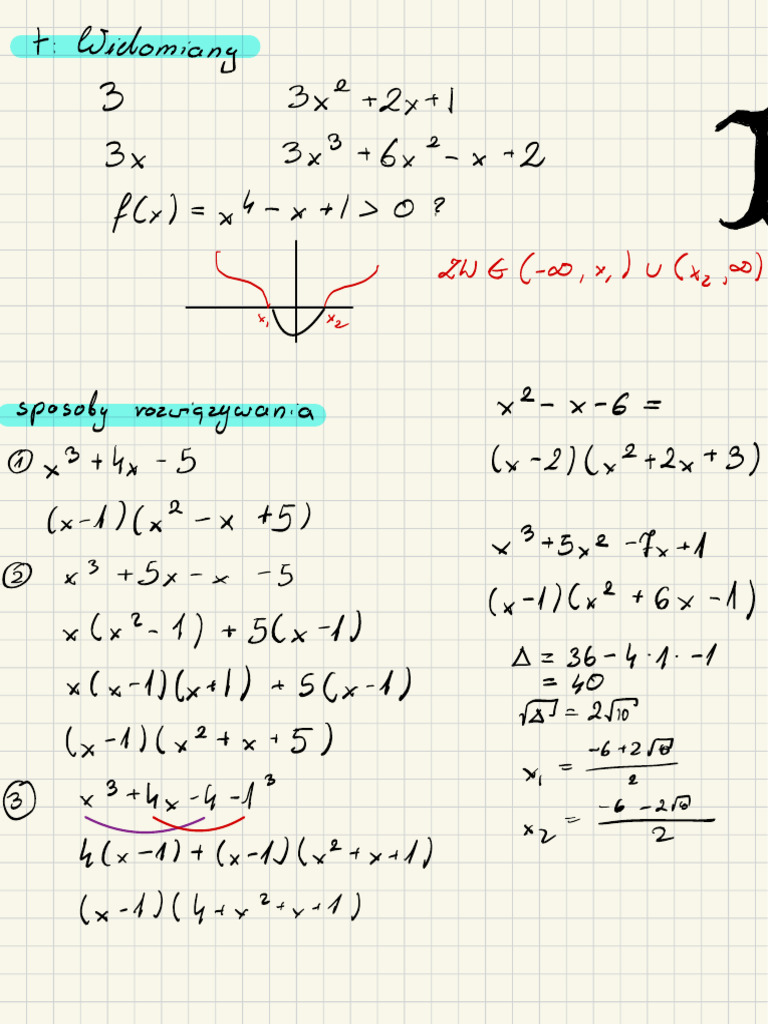 t: Wielomiany
3 3x² + 2x + 1
3x 3x³ + 6x² - x + 2
f(x) = x⁴ - x + 1 > 0 ?
ZW ∈ (-∞, x₁) ∪ (x₂, ∞)
x₁ x₂
sposoby rozwiązywania
① x³ + 4x - 5
(x-1)(x² - x + 5)
② x³ + 5x - x - 5
x(x² - 1) + 5(x - 1)
x(x-1)(x+1) + 5(x-1)
(x-1)(x² + x + 5)
③ x³ + 4x - 4 - 1³
4(x-1) + (x-1)(x² + x + 1)
(x-1)(4 + x² + x + 1)
x² - x - 6 =
(x-2)(x² + 2x + 3)
x³ + 5x² - 7x + 1
(x-1)(x² + 6x - 1)
Δ = 36 - 4 · 1 · -1
= 40
√Δ = 2√10
x₁ = (-6 + 2√10)/2
x₂ = (-6 - 2√10)/2